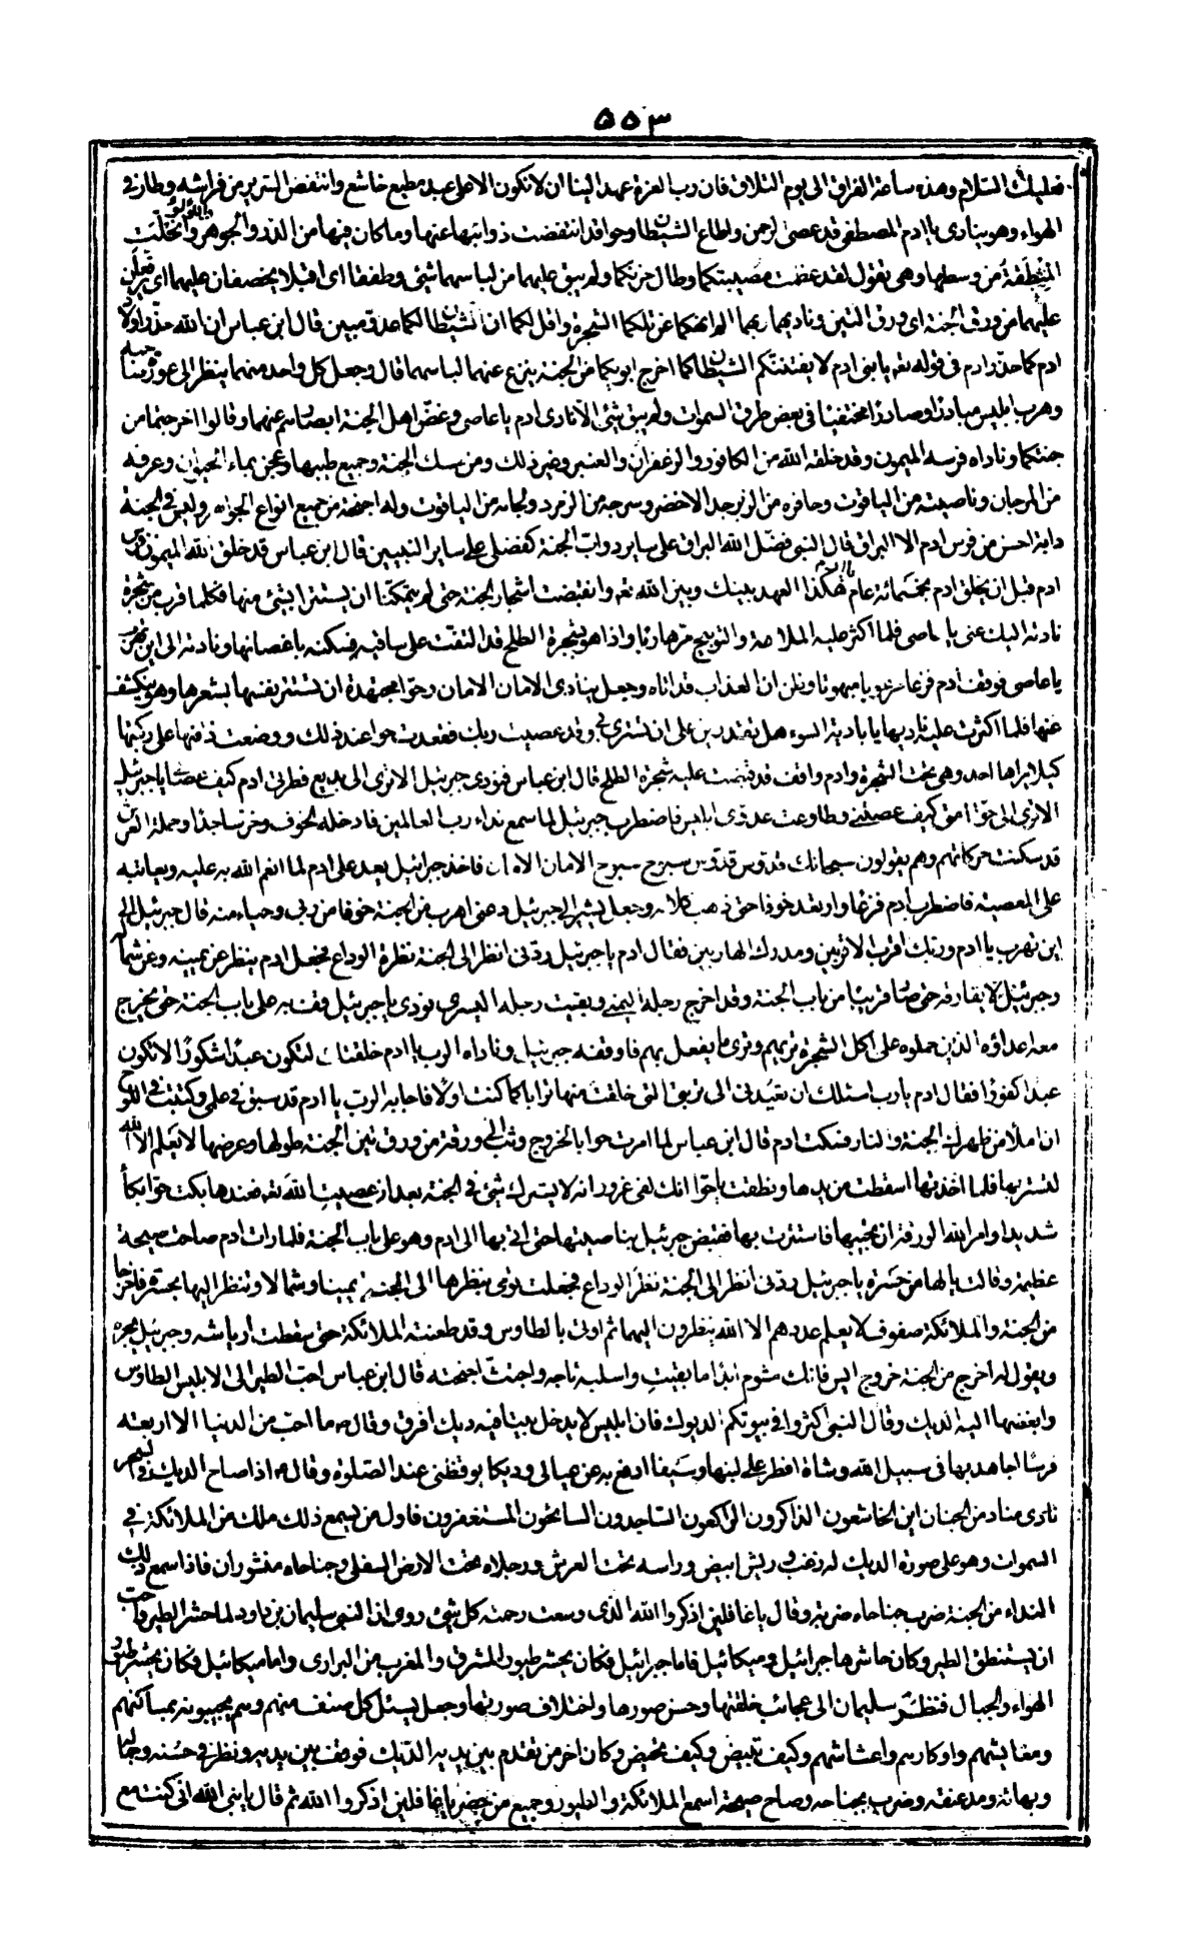 ٥٥٣
فعليك السلام وهذه ساعة الفراق الى يوم التلاق فان رب العزة عهد الينا ان لا نكون الا على عبد مطيع خاشع وانتفض السرير من فراشه وطار في
الهواء وهو ينادى يا ادم المصطفى قد عصى الرحمن واطاع الشيطان وحوا قد انتفضت ذوائبها عنها وما كان فيها من الدر والجوهر وانحلت
المنطقة من وسطها وهى تقول لقد عظمت مصيبتكما وطال حزنكما ولم يبق عليهما من لباسهما شئ وطفقا اى اقبلا يخصفان عليهما اى
عليهما من ورق الجنة اى ورق التين وناديهما ربهما الم انهكما عن تلكما الشجرة واقل لكما ان الشيطان لكما عدو مبين قال ابن عباس ان الله حذر اولاد
ادم كما حذر ادم فى قوله تعه يا بنى ادم لا يفتننكم الشيطان كما اخرج ابويكما من الجنة ينزع عنهما لباسهما قال وجعل كل واحد منهما ينظر الى عورة
وهرب ابليس مبادرا وصار مختفيا فى بعض طرق السموات ولم يبق شئ الا نادى ادم يا عاصى وغض اهل الجنة ابصارهم عنهما وقالوا اخرجتما من
جنتكما وناداه فرسه الميمون وقد خلقه الله من الكافور والزعفران والعنبر وغير ذلك ومن مسك الجنة وجميع طيبها وعجن بماء الحيوان وعرفه
من المرجان وناصيته من الياقوت وحافره من الزبرجد الاخضر وسرجه من الزمرد ولجامه من الياقوت وله اجنحة من جميع انواع الجواهر وليس فى الجنة
دابة احسن من فرس ادم الا البراق قال النبى فضل الله البراق على ساير دواب الجنة كفضلى على ساير النبيين قال ابن عباس قد خلق الله الميمون
ادم قبل ان يخلق ادم بخمسمائة عام هكذا العهد بينك وبين الله تعه وانقبضت اشجار الجنة حتى لم يتمكنا ان يستترا بشئ منها فكلما قرب من شجرة
نادته اليك عنى يا عاصى فلما اكثر عليه الملامة والتوبيخ مر هاربا واذا هو بشجرة الطلح قد التفت على ساقيه فمسكته باغصانها ونادته الى اين تهرب
يا عاصى فوقف ادم فزعا مبهوتا وظن ان العذاب قد اتاه وجعل ينادى الامان الامان وحوا مجتهدة ان تستتر نفسها بشعرها وهو ينكشف
عنها فلما اكثرت عليه ناديها يا بادية السوء هل تقدرين على ان تستترى بى وقد عصيت ربك فقعدت حوا عند ذلك ووضعت ذقنها على ركبتها
كيلا يراها احد وهى تحت الشجرة وادم واقف قد قبضت عليه شجرة الطلح قال ابن عباس فنودى جبرئيل الا ترى الى بديع فطرتى ادم كيف عصانى يا جبرئيل
الا ترى الى حوا امتى كيف عصتنى وطاوعت عدوى ابليس فاضطرب جبرئيل لما سمع نداء رب العالمين فادخله الخوف وخر ساجدا وحملة العرش
قد سكنت حركاتهم وهم يقولون سبحانك قدوس قدوس سبوح سبوح الامان الامان فاخذ جبرائيل يعد على ادم لما انعم الله به عليه ويعاتبه
على المعصية فاضطرب ادم فزعا وارتعد خوفا حتى ذهب كلامه وجعل يشير الى جبرئيل دعنى اهرب من الجنة خوفا من ربى وحياء منه قال جبرئيل الى
اين تهرب يا ادم وربك اقرب الاقربين ومدرك الهاربين فقال ادم يا جبرئيل ردنى انظر الى الجنة نظرة الوداع فجعل ادم ينظر عن يمينه وعن شماله
وجبرئيل لا يفارقه حتى صار قريبا من باب الجنة وقد اخرج رجله اليمنى وبقيت رجله اليسرى نودى يا جبرئيل قف به على باب الجنة حتى يخرج
معه اعداؤه الذين حملوه على اكل الشجرة ويرى ما يفعل بهم فاوقفه جبرئيل وناداه الرب يا ادم خلقتك لتكون عبدا شكورا لا لتكون
عبدا كفورا فقال ادم يا رب اسئلك ان تعيدنى الى تربتى التى خلقت منها ترابا كما كنت اولا فاجابه الرب يا ادم قد سبق فى علمى وكتبت فى اللوح
ان املأ من ظهرك الجنة والنار فسكت ادم قال ابن عباس لما امرت حوا بالخروج وثبت الى ورقة من ورق تين الجنة طولها وعرضها لا يعلم الا الله
لتستتر بها فلما اخذتها اسقطت من يدها ونطقت يا حوا انك لفى غرور انه لا يسترك شئ فى الجنة بعد ان عصيت الله تعه فعندها بكت حوا بكاء
شديدا وامر الله الورقة ان تجيبها فاستترت بها فقبض جبرئيل بناصيتها حتى اتى بها الى ادم وهو على باب الجنة فلما رات ادم صاحت صيحة
عظيمة وقالت يا لها من حسرة يا جبرئيل ردنى انظر الى الجنة نظر الوداع فجعلت تومى بنظرها الى الجنة يمينا وشمالا وتنظر اليها بحسرة فاخرجا
من الجنة والملائكة صفوف لا يعلم عددهم الا الله ينظرون اليهما ثم اوتى بالطاوس وقد طعنته الملائكة حتى سقطت ارياشه وجبرئيل يجره
ويقول له اخرج من الجنة خروج ايس فانك مشوم ابدا ما بقيت واسلبه تاجه واجنت اجنحته قال ابن عباس احب الطير الى ابليس الطاوس
وابغضها اليه الديك وقال النبى اكثروا فى بيوتكم الديوك فان ابليس لا يدخل بيتا فيه ديك افرق وقال ص ما احب من الدنيا الا اربعة
فرسا اجاهد بها فى سبيل الله وشاة افطر على لبنها وسيفا ادفع به عن عيالى وديكا يوقظنى عند الصلوة وقال ص اذا صاح الديك فى السحر
نادى مناد من الجنان اين الخاشعون الذاكرون الراكعون الساجدون السائحون المستغفرون فاول من يسمع ذلك ملك من الملائكة فى
السموات وهو على صورة الديك له زغب وريش ابيض وراسه تحت العرش ورجلاه تحت الارض السفلى وجناحاه منشوران فاذا سمع ذلك
النداء من الجنة ضرب جناحاه ضربة وقال يا غافلين اذكروا الله الذى وسعت رحمته كل شئ روى ان النبى سليمان بن داود لما حشر الطير واحب
ان يستنطق الطير وكان حاشرها جبرائيل وميكائيل فاما جبرائيل فكان يحشر طيور المشرق والمغرب من البرارى واما ميكائيل فكان يحشر طيور
الهواء والجبال فنظر سليمان الى عجائب خلقتها وحسن صورها واختلاف صورتها وجعل يسئل كل صنف منهم وهم يجيبونه بمساكنهم
ومعايشهم واوكارهم واعشاشهم وكيف تبيض وكيف تحيض وكان اخر من تقدم بين يديه الديك فوقف بين يديه ونظر فى حسنه وجماله
وبهائه ومد عنقه وضرب بجناحه وصاح صيحة اسمع الملائكة والطيور وجميع من حضر يا غافلين اذكروا الله ثم قال يا نبى الله انى كنت مع